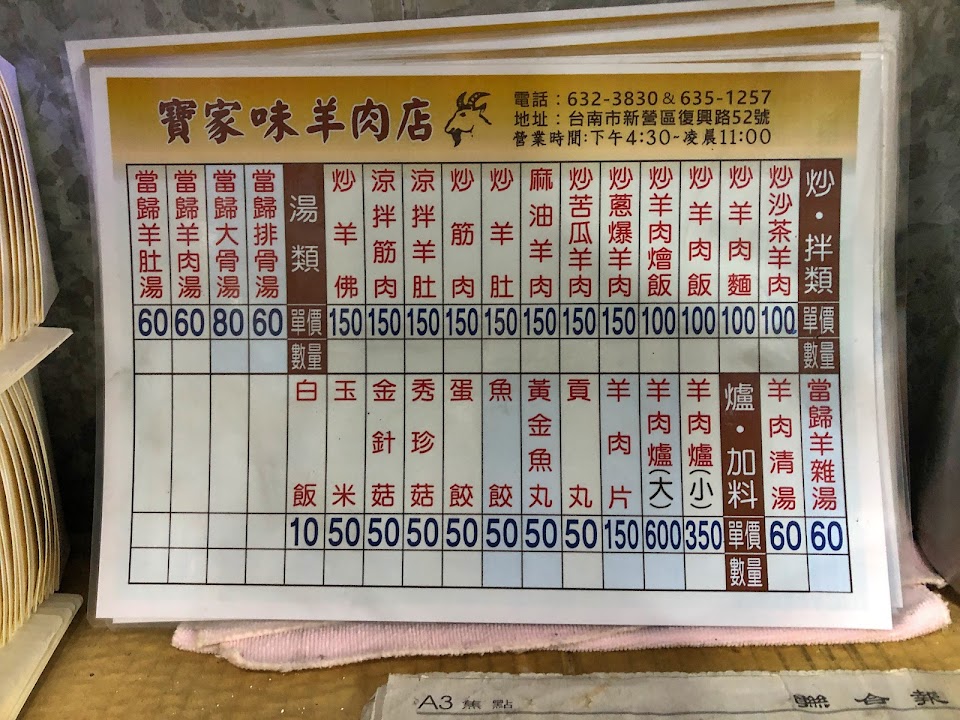 寶家味羊肉店
電話：632-3830&635-1257
地址：台南市新營區復興路52號
營業時間:下午4:30~凌晨11:00
炒・拌類 單價 數量
炒沙茶羊肉 100
炒羊肉麵 100
炒羊肉飯 100
炒羊肉燴飯 100
炒蔥爆羊肉 150
炒苦瓜羊肉 150
麻油羊肉 150
炒羊肚 150
炒筋肉 150
涼拌羊肚 150
涼拌筋肉 150
炒羊佛 150
湯類 單價 數量
當歸排骨湯 60
當歸大骨湯 80
當歸羊肉湯 60
當歸羊肚湯 60
當歸羊雜湯 60
羊肉清湯 60
爐・加料 單價 數量
羊肉爐(小) 350
羊肉爐(大) 600
羊肉片 150
貢丸 50
黃金魚丸 50
魚餃 50
蛋餃 50
秀珍菇 50
金針菇 50
玉米 50
白飯 10
A3 焦點
聯合報